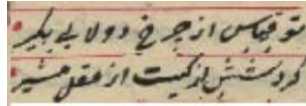 تو قیاس از چرخ دولابی بگیر
گردشش از کیست از عقل مشیر